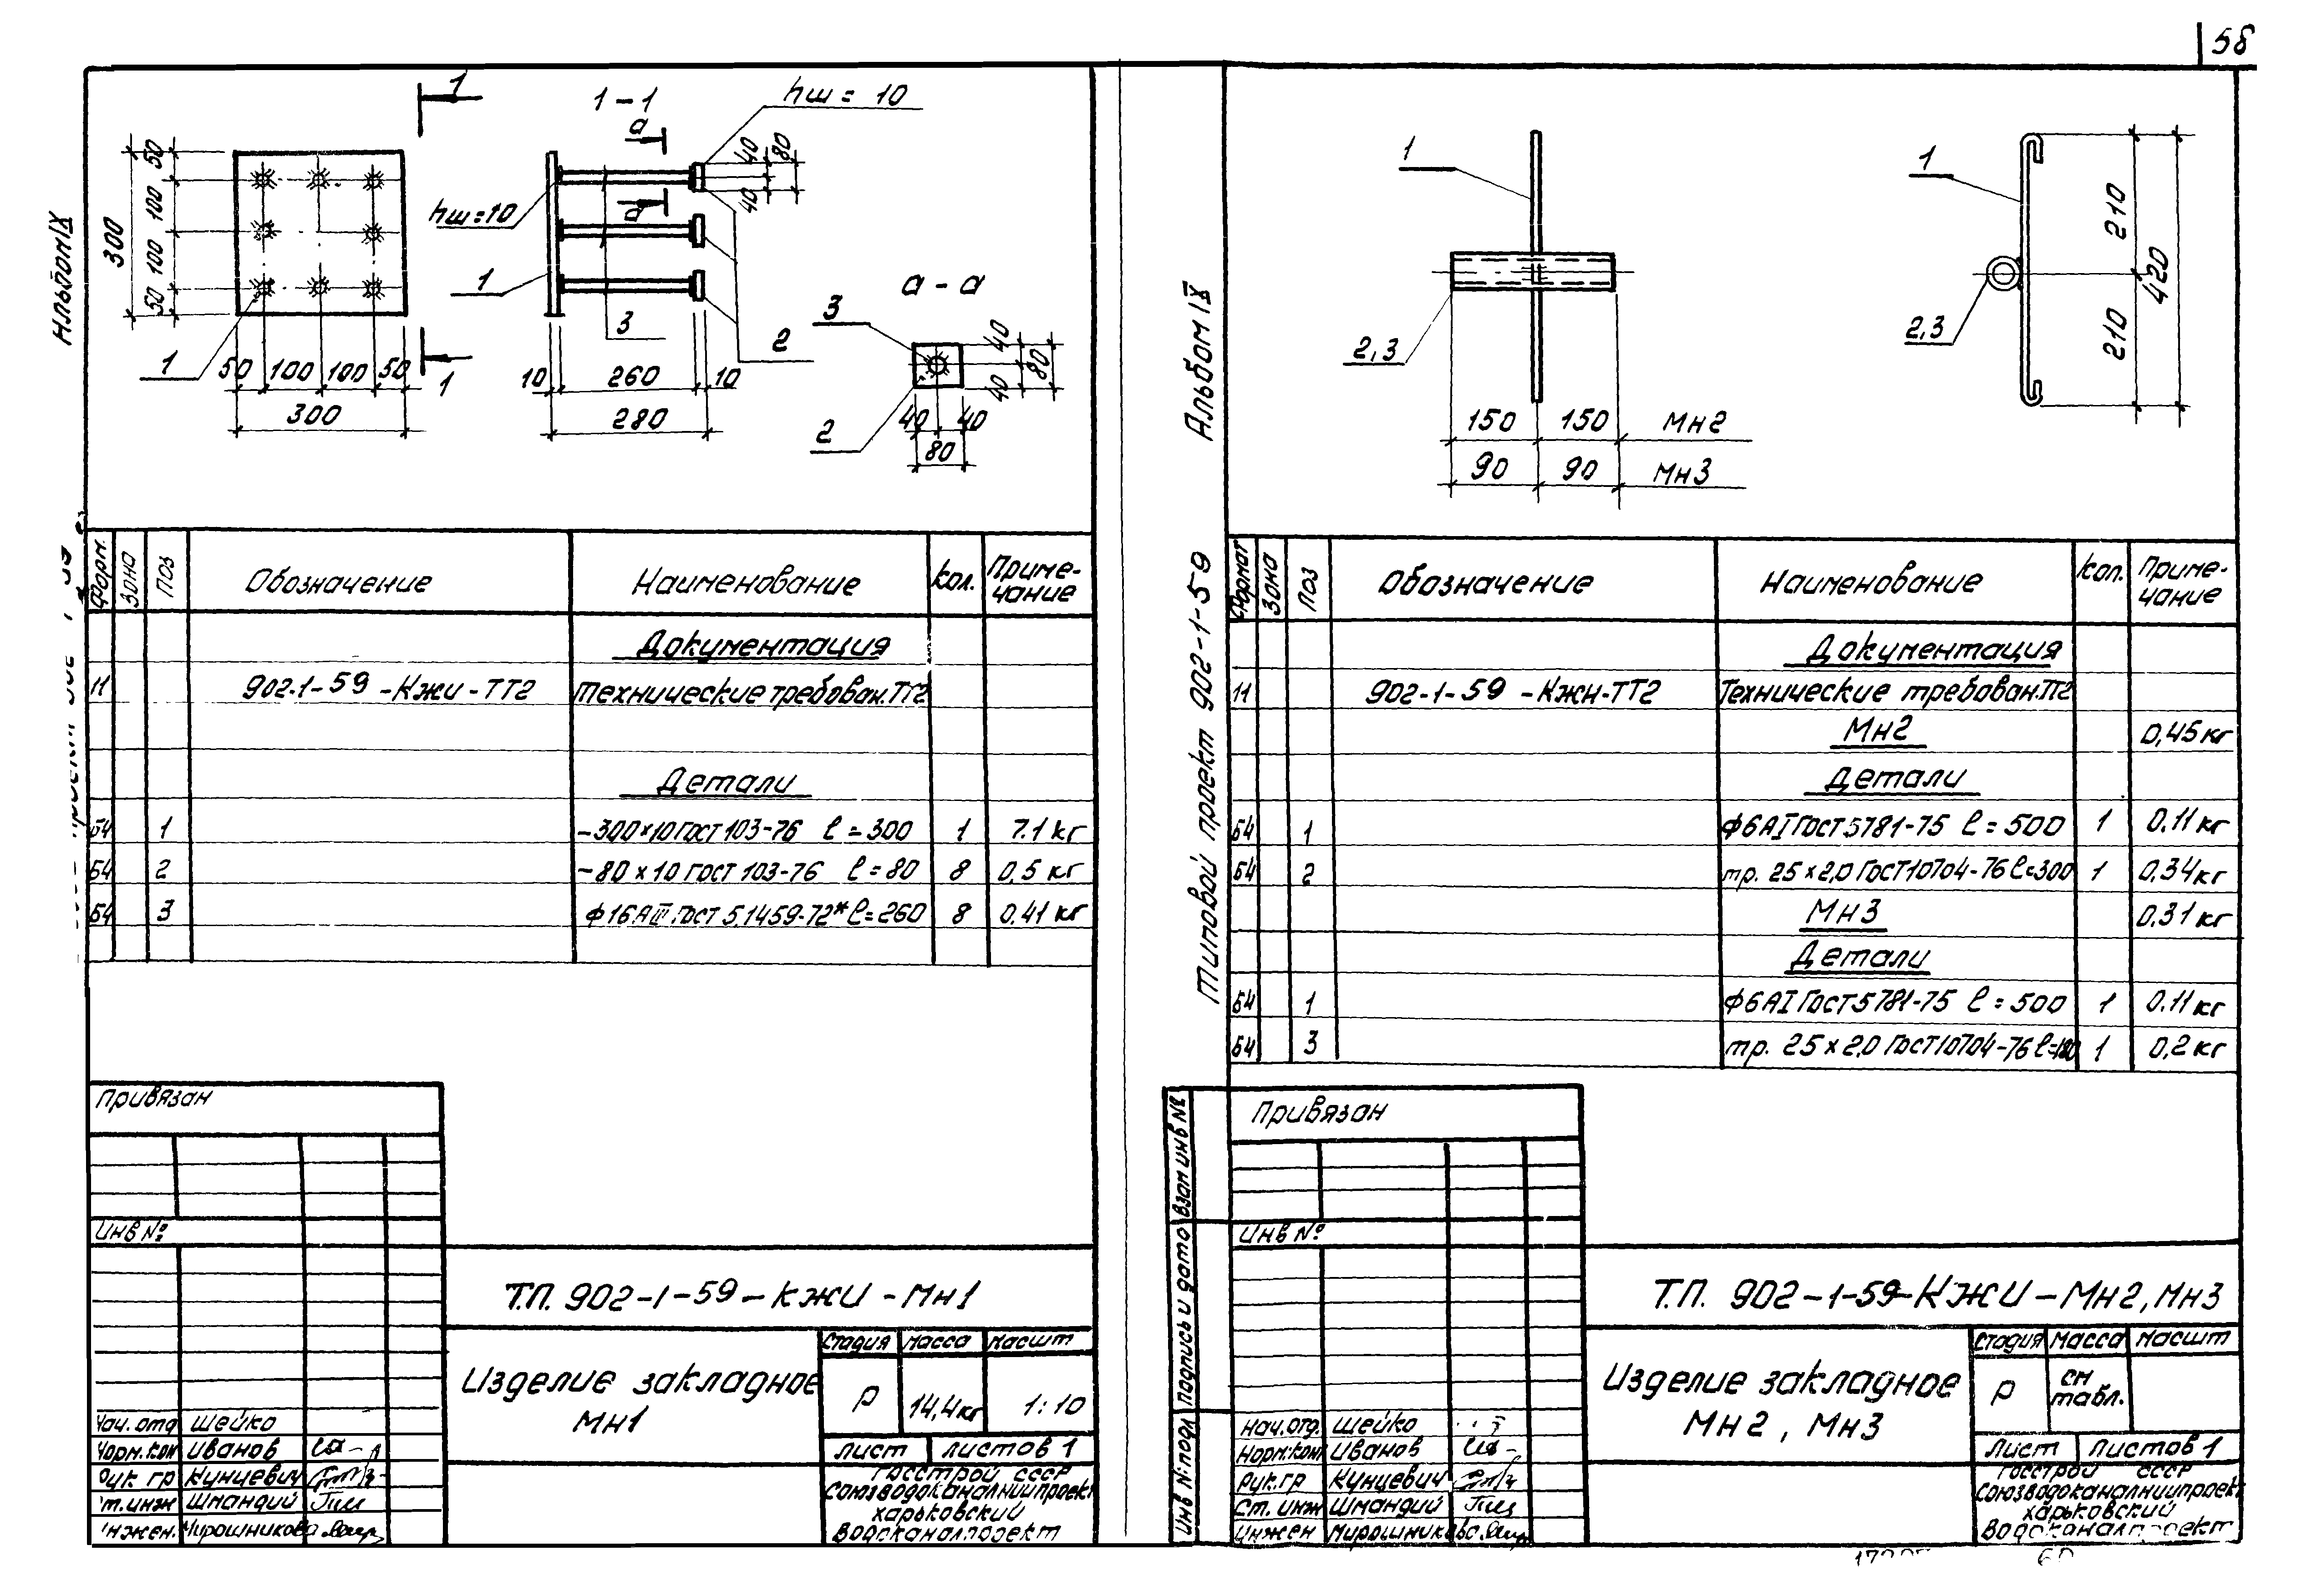 58
Альбом IX
1
1-1
hш = 10
а
40
80
40
hш=10
а
50
100
100
50
300
1
50 100 100 50
300
1
1
3
2
10 260 10
280
а - а
3
2
40
40
80
40 40
80
Форм. Зона Поз Обозначение Наименование Кол. Приме-
чание
Документация
11 902-1-59 -КЖИ-ТТ2 Технические требован.ТТ2
Детали
Б4 1 -300×10 ГОСТ 103-76 ℓ = 300 1 7.1 кг
Б4 2 -80×10 ГОСТ 103-76 ℓ = 80 8 0,5 кг
Б4 3 ф16АIII ГОСТ 5.1459-72* ℓ=260 8 0.41 кг
Привязан
Инв №
Т.П. 902-1-59-КЖИ-Мн1
Изделие закладное
Мн1
Стадия Масса Масшт
Р 14,4кг 1:10
Лист Листов 1
Госстрой СССР
Союзводоканалниипроект
Харьковский
Водоканалпроект
Нач. отд Шейко
Норм.кон Иванов
Рук. гр Кунцевич
Ст. инж Шмандий
Инжен. Мирошникова
Альбом IX
Типовой проект 902-1-59
1
2,3
150 150 Мн2
90 90 Мн3
1
2,3
210
210
420
Формат Зона Поз Обозначение Наименование Кол. Приме-
чание
Документация
11 902-1-59 -КЖИ-ТТ2 Технические требован.ТТ2
Мн2 0,45 кг
Детали
Б4 1 ф6АI ГОСТ 5781-75 ℓ = 500 1 0.11 кг
Б4 2 тр. 25×2,0 ГОСТ 10704-76 ℓ=300 1 0,34кг
Мн3 0,31 кг
Детали
Б4 1 ф6АI ГОСТ 5781-75 ℓ = 500 1 0.11 кг
Б4 3 тр. 25×2,0 ГОСТ 10704-76 ℓ=180 1 0,2 кг
Инв № подл Подпись и дата Взам инв №
Привязан
Инв №
Т.П. 902-1-59-КЖИ-Мн2, Мн3
Изделие закладное
Мн2, Мн3
Стадия Масса Масшт
Р см
табл.
Лист Листов 1
Госстрой СССР
Союзводоканалниипроект
Харьковский
Водоканалпроект
Нач.отд. Шейко
Норм.кон Иванов
Рук.гр Кунцевич
Ст. инж Шмандий
Инжен Мирошникова